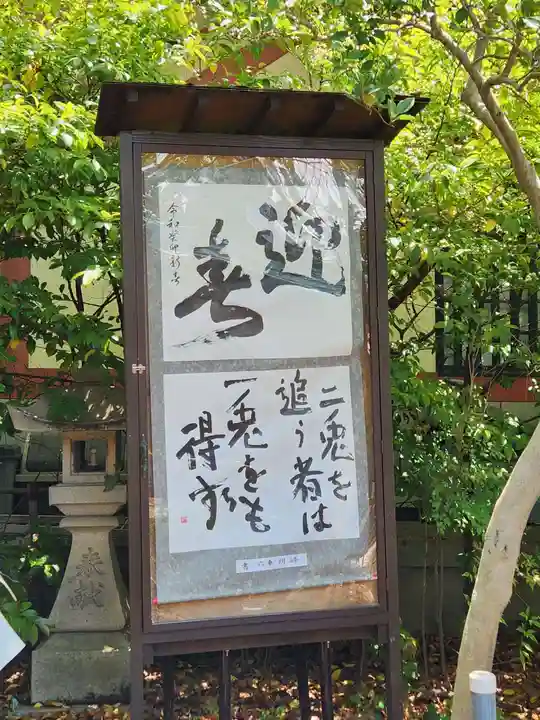 迎
春
令和癸卯新春
二兎を
追う者は
一兎をも
得ず
奉献